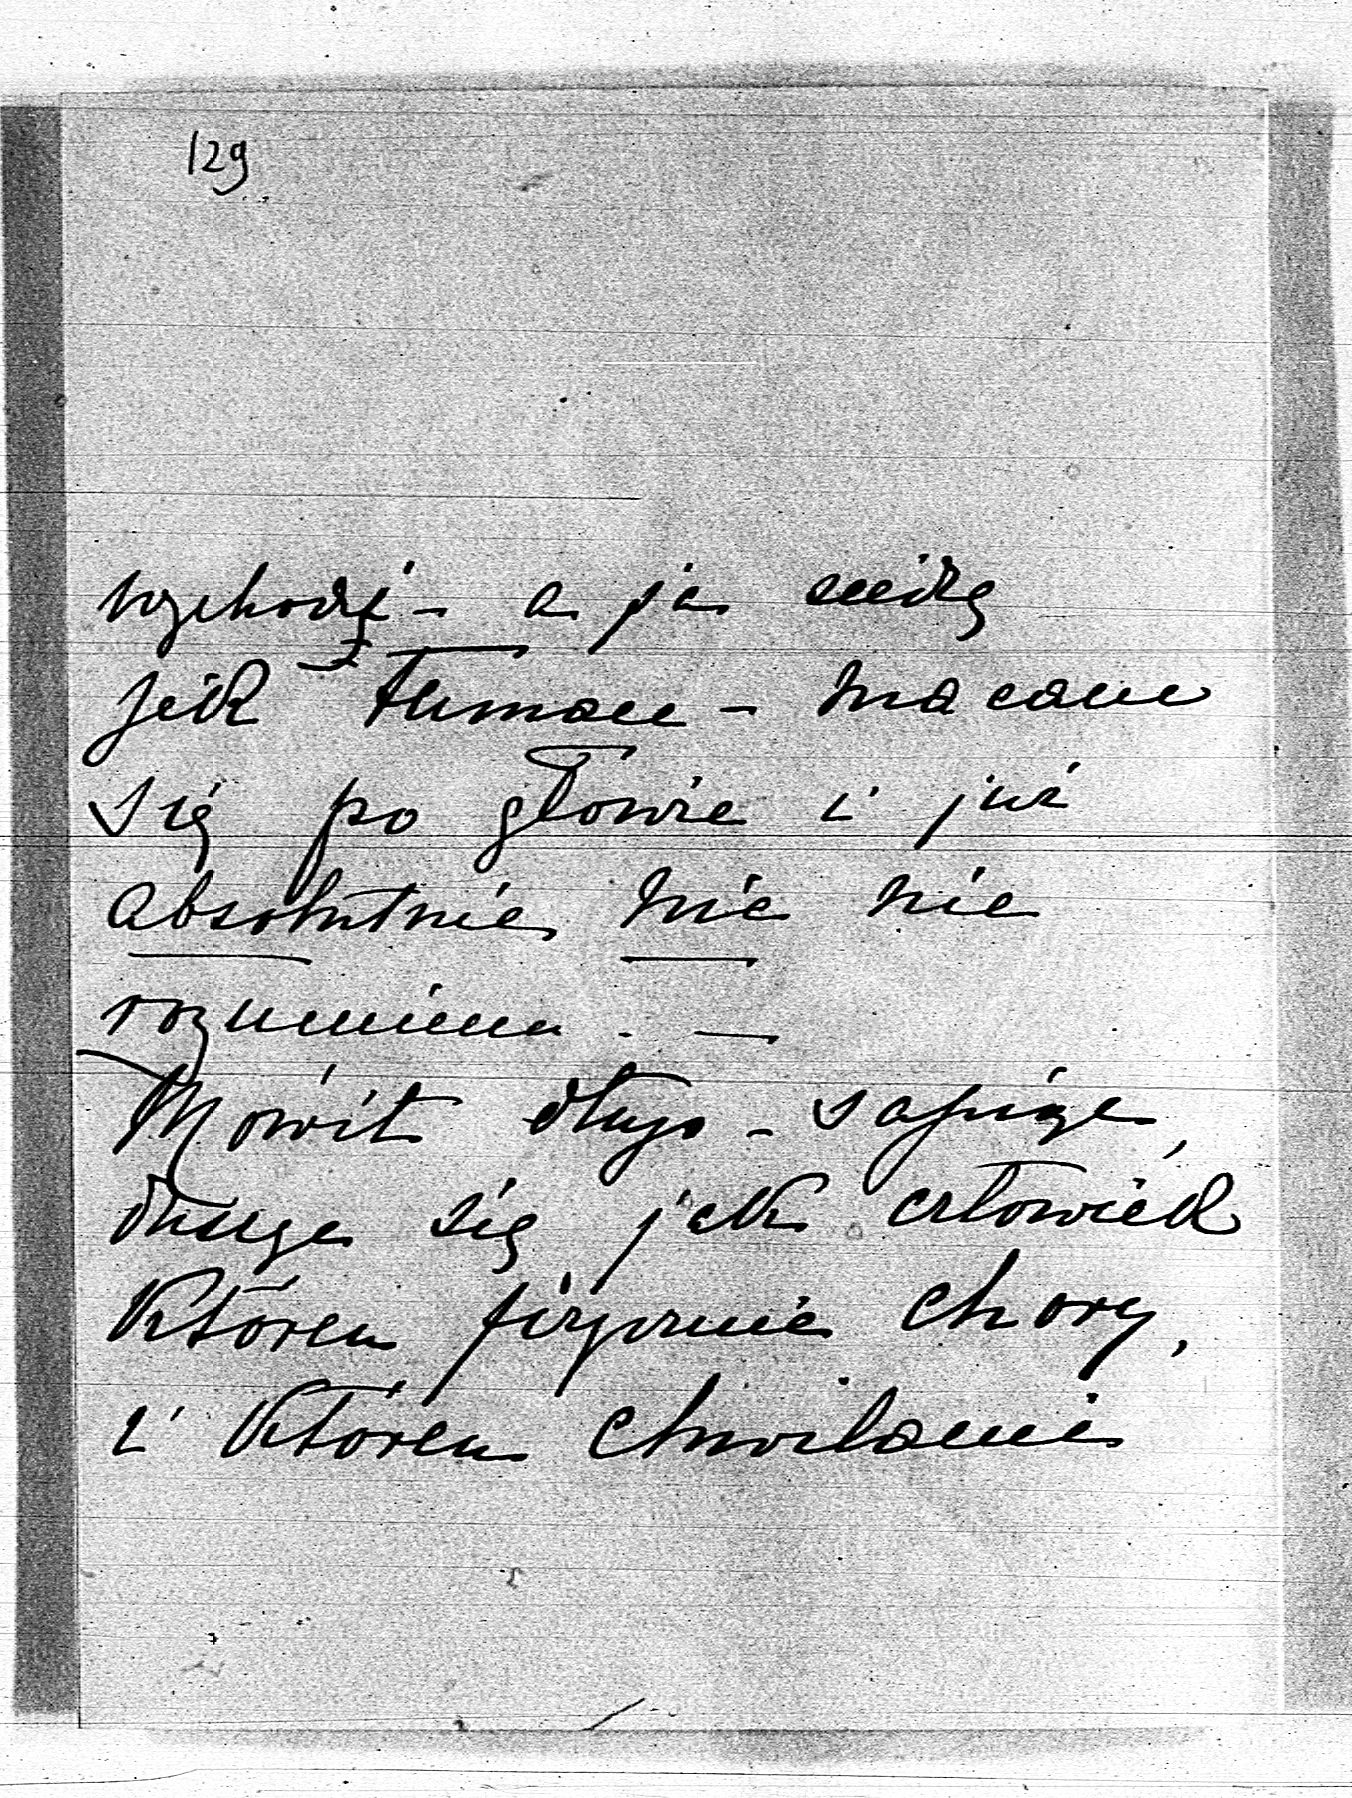 129
wychodzi - a ja siedzę
jak tłumacz - macam
się po głowie i już
absolutnie nic nie
rozumiem. —
Mówił długo - sapiąc,
dusząc się jak człowiek
któren fizycznie chory,
i któren chwilami